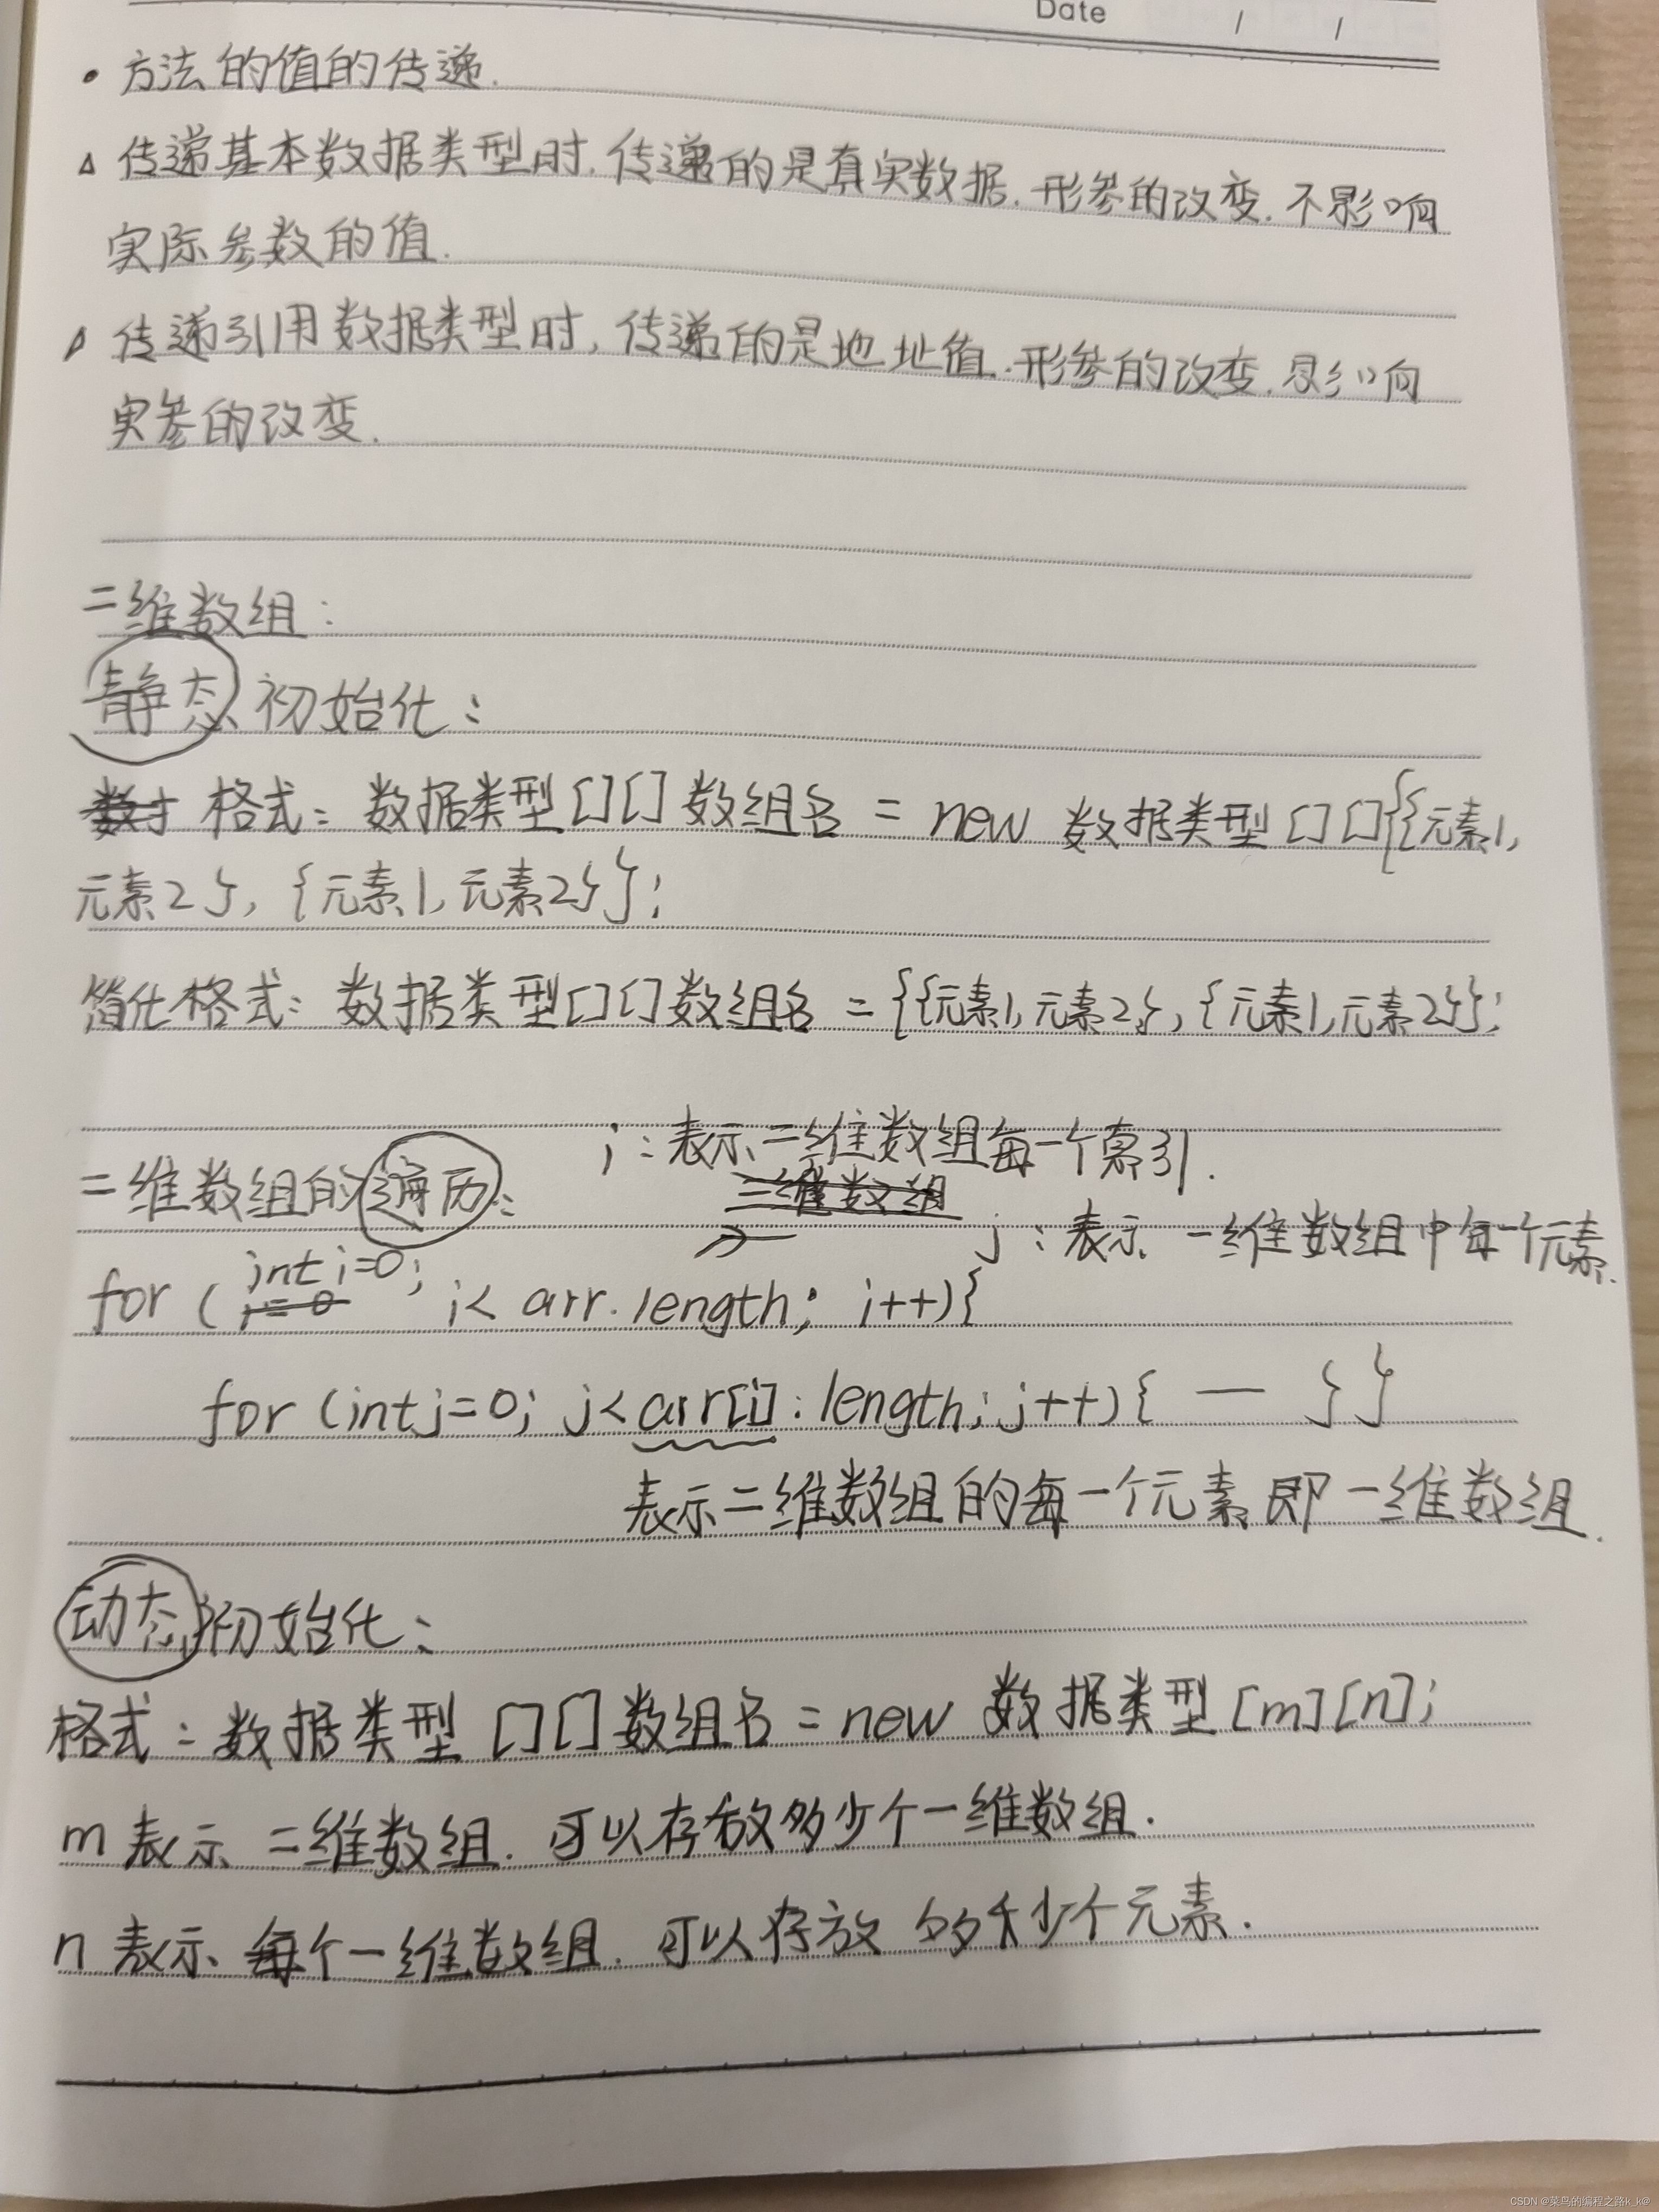 Date / /
• 方法的值的传递.
△ 传递基本数据类型时.传递的是真实数据.形参的改变.不影响
实际参数的值.
△ 传递引用数据类型时,传递的是地址值.形参的改变.影响
实参的改变.
二维数组:
静态初始化:
格式: 数据类型[][] 数组名 = new 数据类型[][]{{元素1,
元素2}, {元素1,元素2}};
简化格式: 数据类型[][]数组名 = {{元素1,元素2},{元素1,元素2}};
i:表示二维数组每一个索引.
二维数组的遍历:
二维数组
j:表示 一维数组中每一个元素.
int i=0;
for ( i=0 i< arr.length; i++){
for (int j=0; j<arr[i].length; j++){ — }}
表示二维数组的每一个元素即一维数组.
动态初始化:
格式:数据类型 [][]数组名=new 数据类型[m][n];
m 表示 二维数组.可以存放多少个一维数组.
n 表示 每个一维数组.可以存放 多少个元素.
CSDN @菜鸟的编程之路k_k@